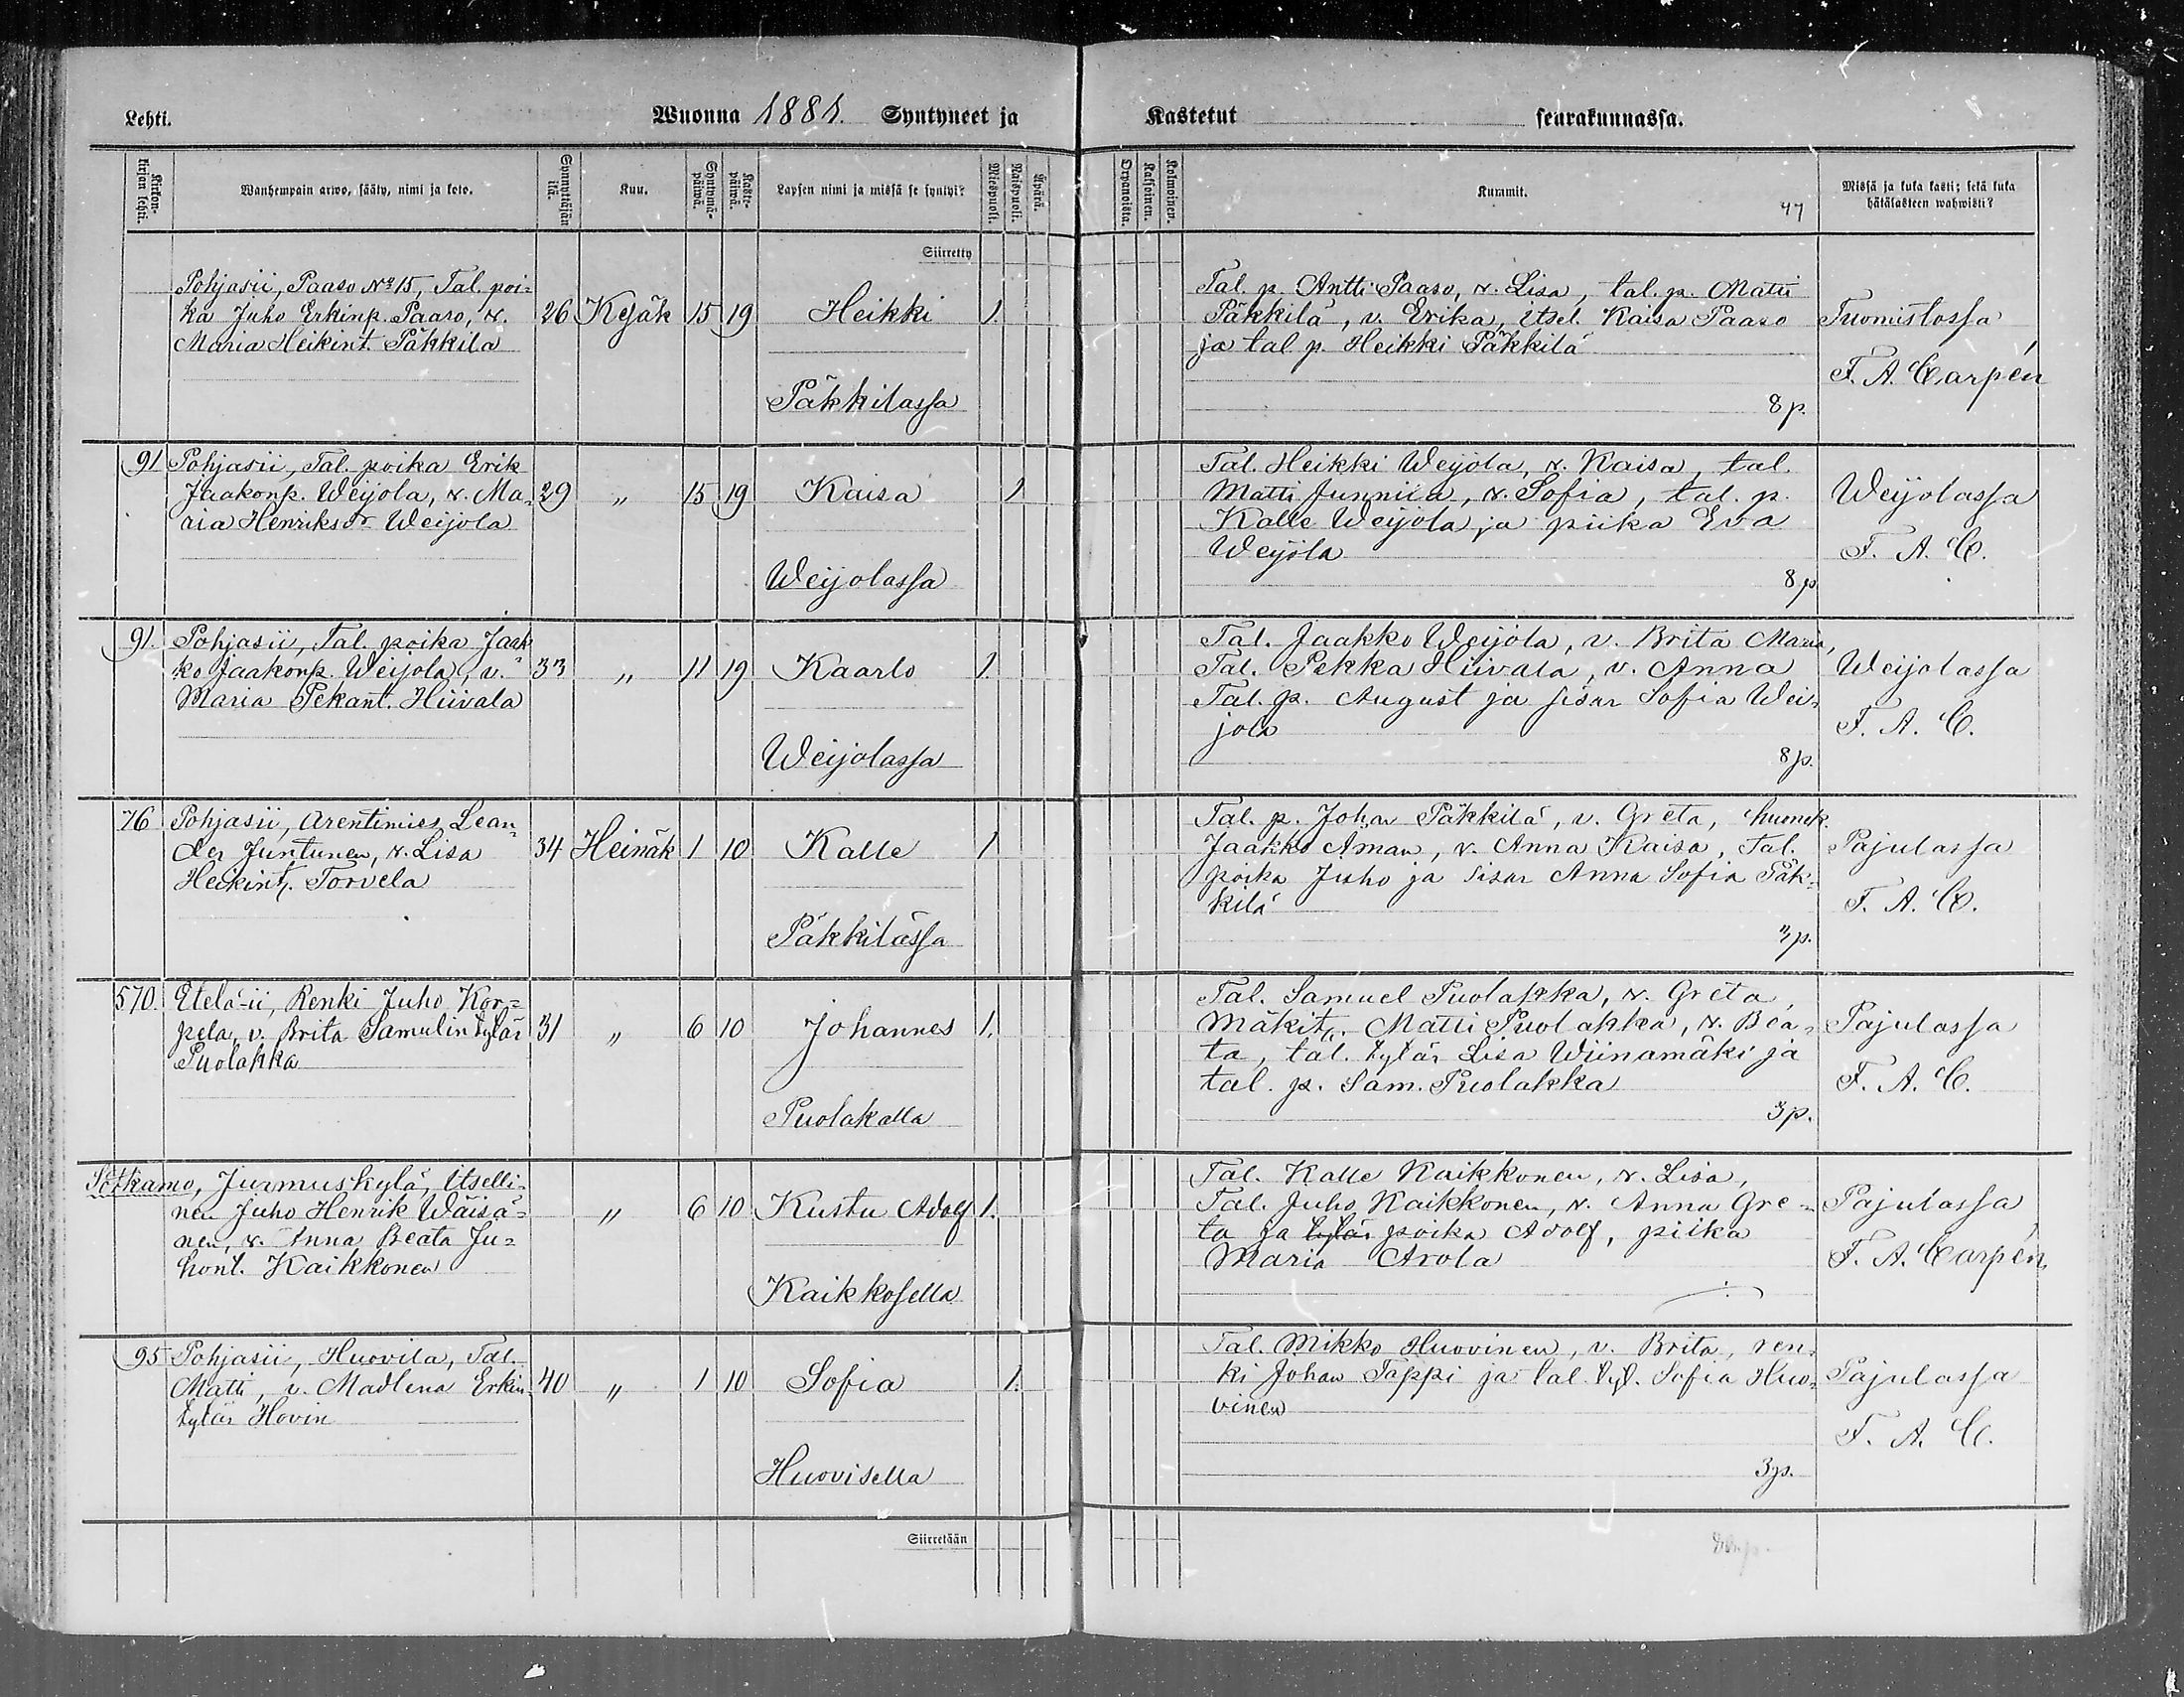 Lehti. Wuonna 1881. Syntyneet ja Kastetut seurakunnassa.
Kirkon-kirjan lehti. Wanhempain arwo, sääty, nimi ja koto. Synnyttäjän ikä. Kuu. Syntymä-päiwä. Kaste-päiwä. Lapsen nimi ja missä se syntyi? Miespuoli. Waispuoli. Äpärä. Orpanoista. Kaksoinen. Kolmoinen. Kummit. 47 Missä ja kuka kasti; sekä kuka hätäkasteen wahwisti?
Siirretty
Pohjasii, Paaso No 15, Tal. poi=
ka Juho Erkinp. Paaso, v.
Maria Heikint. Päkkilä
26 Kejäk 15 19 Heikki 1.
Päkkilassa
Tal. p. Antti Paaso, v. Lisa, tal. p. Matti
Päkkilä, v. Erika, itsel. Kaisa Paaso
ja tal p. Heikki Päkkilä
8 p.
Tuomistossa
F. A. Carpén
91 Pohjasii, Tal. poika Erik
Jaakonp. Weijola, v. Ma=
ria Henriksdr Weijola
29 " 15 19 Kaisa 1
Weijolassa
Tal. Heikki Weijola, v. Kaisa, tal.
Matti Junnila, v. Sofia, tal. p.
Kalle Weijola ja piika Eva
Weijola
8 p
Weijolassa
F. A. C.
91. Pohjasii, Tal. poika Jaak
ko Jaakonp. Weijola, v.
Maria Pekant. Hiivala
33 " 11 19 Kaarlo 1.
Weijolassa
Tal. Jaakko Weijola, v. Brita Maria,
Tal. Pekka Hiivala, v. Anna
Tal. p. August ja sisar Sofia Wei=
jola
8 p.
Weijolassa
F. A. C.
76 Pohjasii, Arentimies Lean=
der Juntunen, v. Lisa
Heikint. Torvela
34 Heinäk 1 10 Kalle 1
Päkkilässa
Tal. p. Johan Päkkilä, v. Greta, huonek.
Jaakko Åman, v. Anna Kaisa, Tal.
poika Juho ja sisar Anna Sofia Päk=
kilä
3 p.
Pajulassa
F. A. C.
570. Etelä-ii, Renki Juho Kor=
pela, v. Brita Samulin tytär
Puolakka
31 " 6 10 Johannes 1.
Puolakalla
Tal. Samuel Puolakka, v. Greta,
Mäkit. Matti Puolakka, v. Bea=
ta, tal. tytär Lisa Wiinamäki ja
tal. p. Sam. Puolakka
3 p.
Pajulassa
F. A. C.
Sotkamo, Jurmuskylä, Itselli=
nen Juho Henrik Wäisä=
nen, v. Anna Beata Ju=
hont. Kaikkonen
" 6 10 Kustu Adolf 1.
Kaikkosella
Tal. Kalle Kaikkonen, v. Lisa,
Tal. Juho Kaikkonen, v. Anna Gre=
ta ja tytär poika Adolf, piika
Maria Arola
Pajulassa
F. A. Carpén
95 Pohjasii, Huovila, Tal.
Matti, v. Madlena Erkin
tytär Hovin
40 " 1 10 Sofia 1.
Huovisella
Tal. Mikko Huovinen, v. Brita, ren=
ki Johan Tappi ja tal. tyt. Sofia Huo=
vinen
3 p.
Pajulassa
F. A. C.
Siirretään